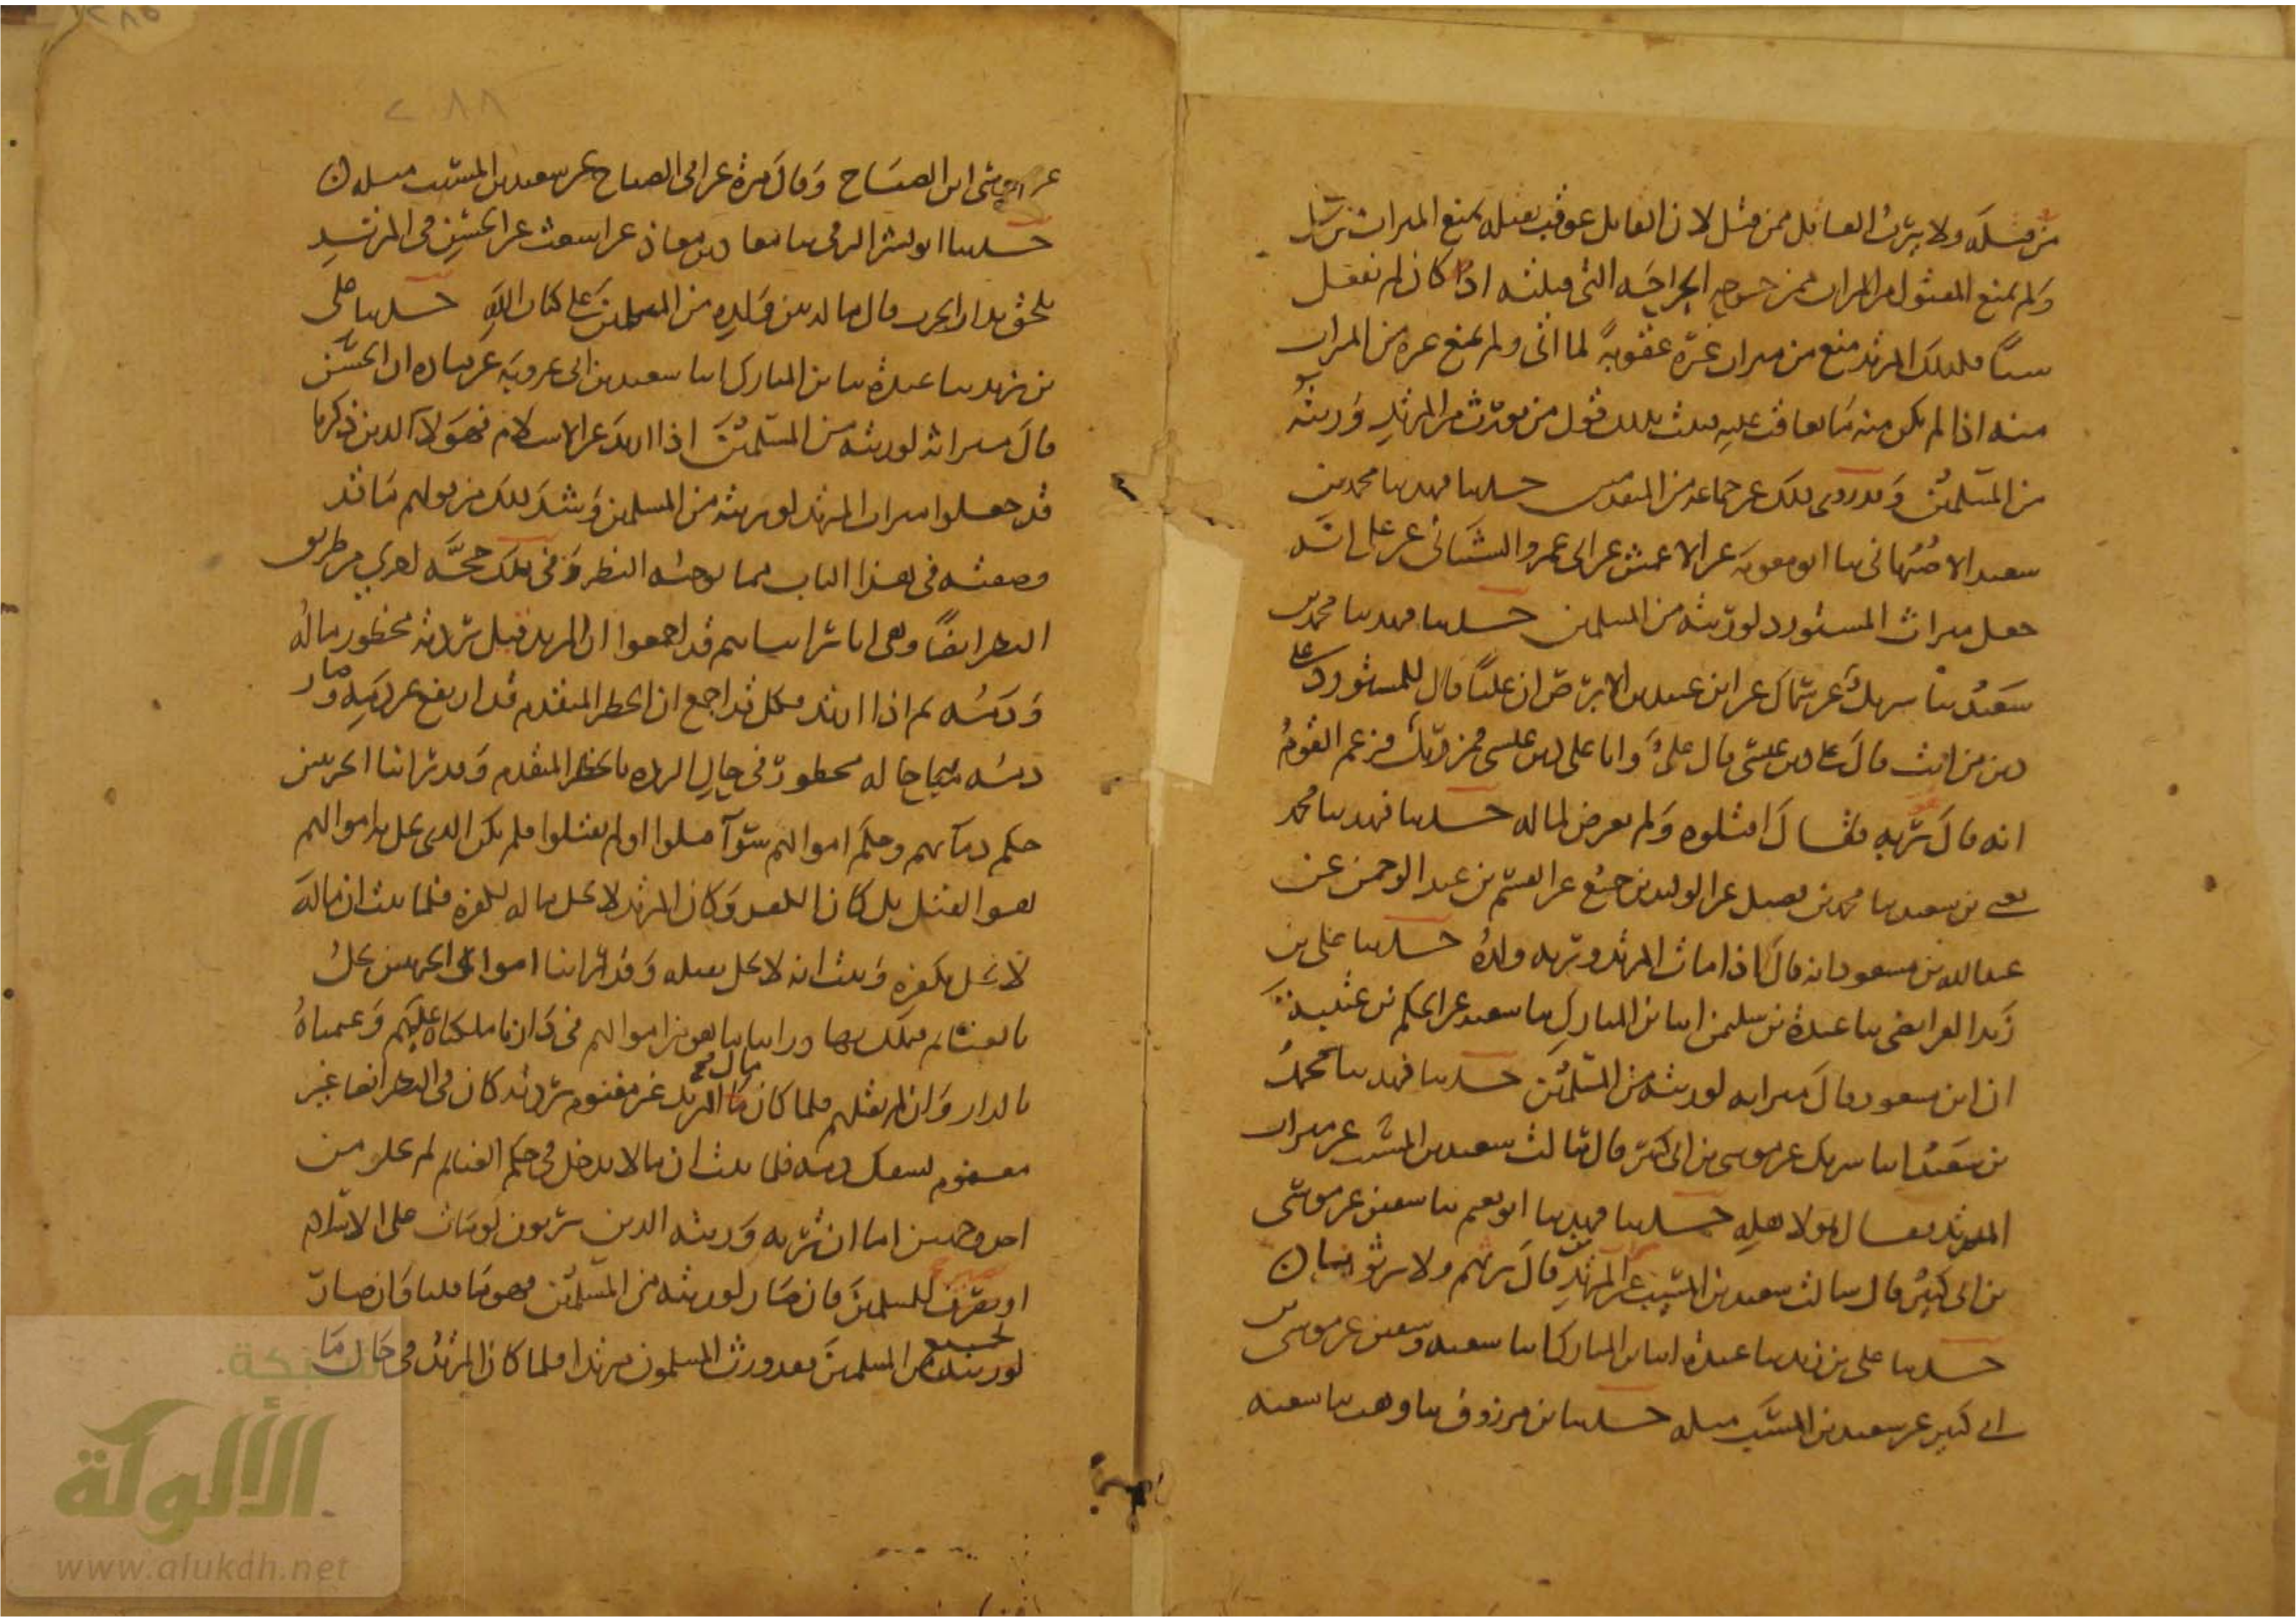 من قتله ولا يرث القاتل ممن قتل لان القاتل عوقب بقتله بمنع الميراث ممن قتل
ولم يمنع المقتول من الميراث ممن جرحه الجراحة التي قتلته اذا كان لم يفعل
شيئا فلذلك المرتد منع من ميراث غيره عقوبة لما اتى ولم يمنع غيره من الميراث
منه اذا لم يكن منه ما يعاقب عليه فثبت بذلك قول من يورث من المرتد ورثته
من المسلمين وقد روي ذلك عن جماعة من المتقدمين حدثنا فهد ثنا محمد بن
سعيد الاصبهاني ثنا ابو معوية عن الاعمش عن ابي عمرو الشيباني عن علي انه
جعل ميراث المستورد لورثته من المسلمين حدثنا فهد ثنا محمد بن
سعيد ثنا شريك عن سماك عن ابن عبيد بن الابرص ان عليا قال للمستورد على
دين من انت قال على دين عيسى قال علي وانا على دين عيسى فمن ربك فزعم القوم
انه قال ربه فقال اقتلوه ولم يعرض لماله حدثنا فهد ثنا محمد
بن سعيد ثنا محمد بن فضيل عن الوليد بن جميع عن القسم بن عبد الرحمن عن
عبد الله بن مسعود انه قال اذا مات المرتد ورثه ولده حدثنا علي بن
زيد الفرايضي ثنا عبدة بن سليمن انا بن المبارك ثنا سعيد عن الحكم بن عتيبة
ان ابن مسعود قال ميراثه لورثته من المسلمين حدثنا فهد ثنا محمد
بن سعيد انا شريك عن موسى بن ابي كثير قال سالت سعيد بن المسيب عن ميراث
المرتد فقال هو لاهله حدثنا فهد ثنا ابو نعيم ثنا سفين عن موسى
بن ابي كثير قال سالت سعيد بن المسيب عن المرتد فقال نرثهم ولا يرثوننا
حدثنا علي بن زيد ثنا عبدة انا بن المبارك انا سعيد وسفين عن موسى بن
ابي كثير عن سعيد بن المسيب مثله حدثنا بن مرزوق ثنا وهب ثنا شعبة
٢٨٨
عن موسى ابن الصباح وقال مرة عن ابي الصباح عن سعيد بن المسيب مثله
حدثنا ابو بشر الرقي ثنا معاذ بن معاذ عن اشعث عن الحسن في المرتد
يلحق بدار الحرب قال ماله بين ولده من المسلمين على كتاب الله حدثنا علي
بن زيد ثنا عبدة ثنا بن المبارك انا سعيد بن ابي عروبة عن قتادة ان الحسن
قال ميراثه لورثته من المسلمين اذا ارتد عن الاسلام فهولا الذين ذكرنا
قد جعلوا ميراث المرتد لورثته من المسلمين وشد ذلك من قولهم ما قد
وصفته في هذا الباب مما يوجبه النظر وفي ذلك حجة اخرى من طريق
النظر ايضا وهي انا راينا انهم قد اجمعوا ان المرتد قبل ردته محظور ماله
ودمه ثم اذا ارتد فكل قد اجمع ان الحظر المتقدم قد ارتفع عن دمه وصار
دمه مباحا وماله محظور في حال الردة بالحظر المتقدم وقد راينا الحربيين
حكم دمائهم وحكم اموالهم سوا قتلوا او لم يقتلوا فلم يكن الذي يحل به اموالهم
هو القتل بل كان الكفر وكان المرتد لا يحل ماله بكفره فلما ثبت ان ماله
لا يحل بكفره وثبت انه لا يحل بقتله وقد راينا اموال الحربيين تحل
بالغنائم فتملك بها وراينا ما وقع من اموالهم في دارنا ملكناه عليهم وغنمناه
بالدار وان لم نقتلهم فلما كان مال المرتد غير مغنوم بردته كان في النظر ايضا غير
مغنوم بسفك دمه فلما ثبت ان ماله لا يدخل في حكم الغنائم لم يخل من
احد وجهين اما ان يرثه ورثته الذين يرثونه لو مات على الاسلام
او يصير للمسلمين فان صار لورثته من المسلمين فهو ما قلنا وان صار
لجميع المسلمين فقد ورث المسلمون مرتدا فلما كان المرتد في حال ما
شبكة
الألوكة
www.alukah.net